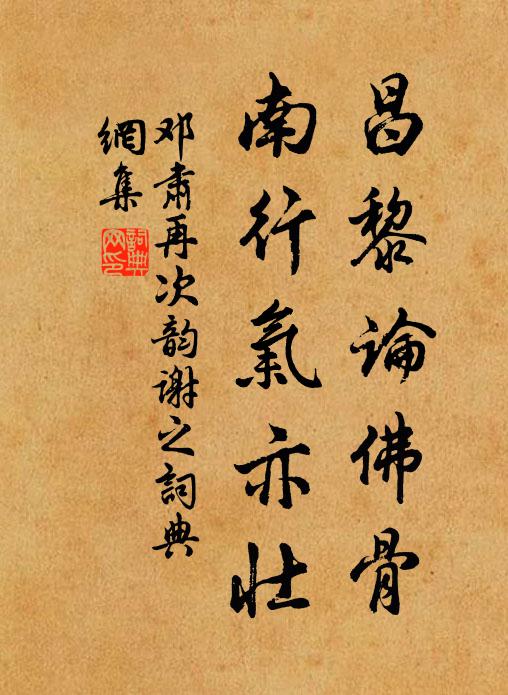 昌黎論佛骨
南行氣亦壯
邓肅再次韵谢之詞典
網集
詞典
网印